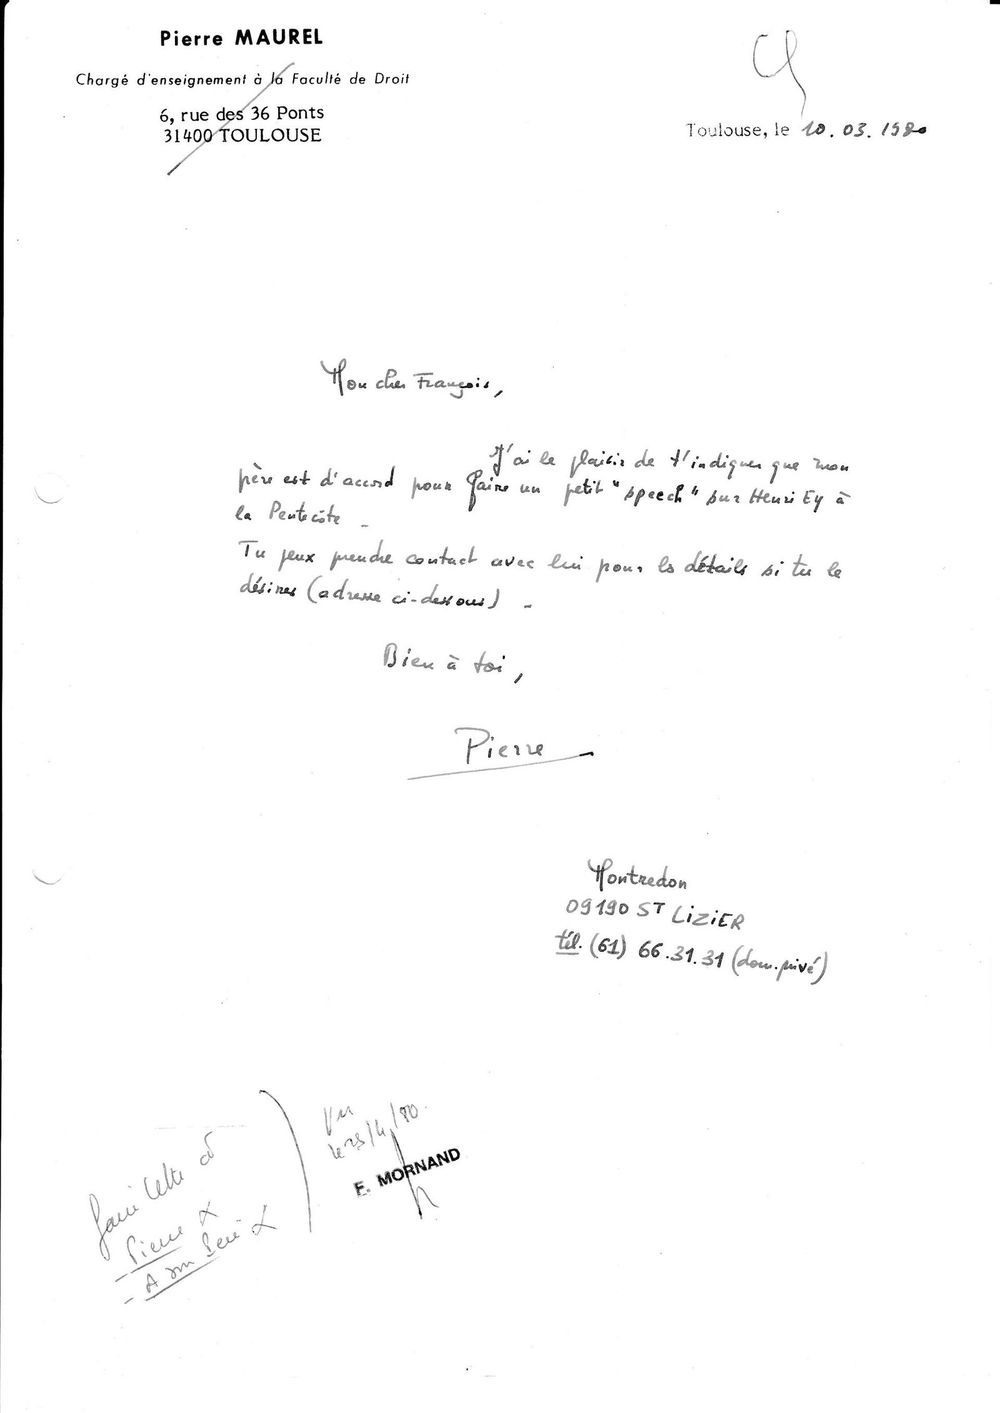 Pierre MAUREL
Chargé d'enseignement à la Faculté de Droit
6, rue des 36 Ponts
31400 TOULOUSE
Toulouse, le 10.03.1980
Mon cher François,
J'ai le plaisir de t'indiquer que mon
père est d'accord pour faire un petit "speech" sur Henri Ey à
la Pentecôte _
Tu peux prendre contact avec lui pour les détails si tu le
désires (adresse ci-dessous) _
Bien à toi,
Pierre
Montredon
09190 ST LiZiER
tél. (61) 66.31.31 (dom. privé)
Vu
le 25/4/80
E. MORNAND
faire lettre à
- Pierre
- A son Père